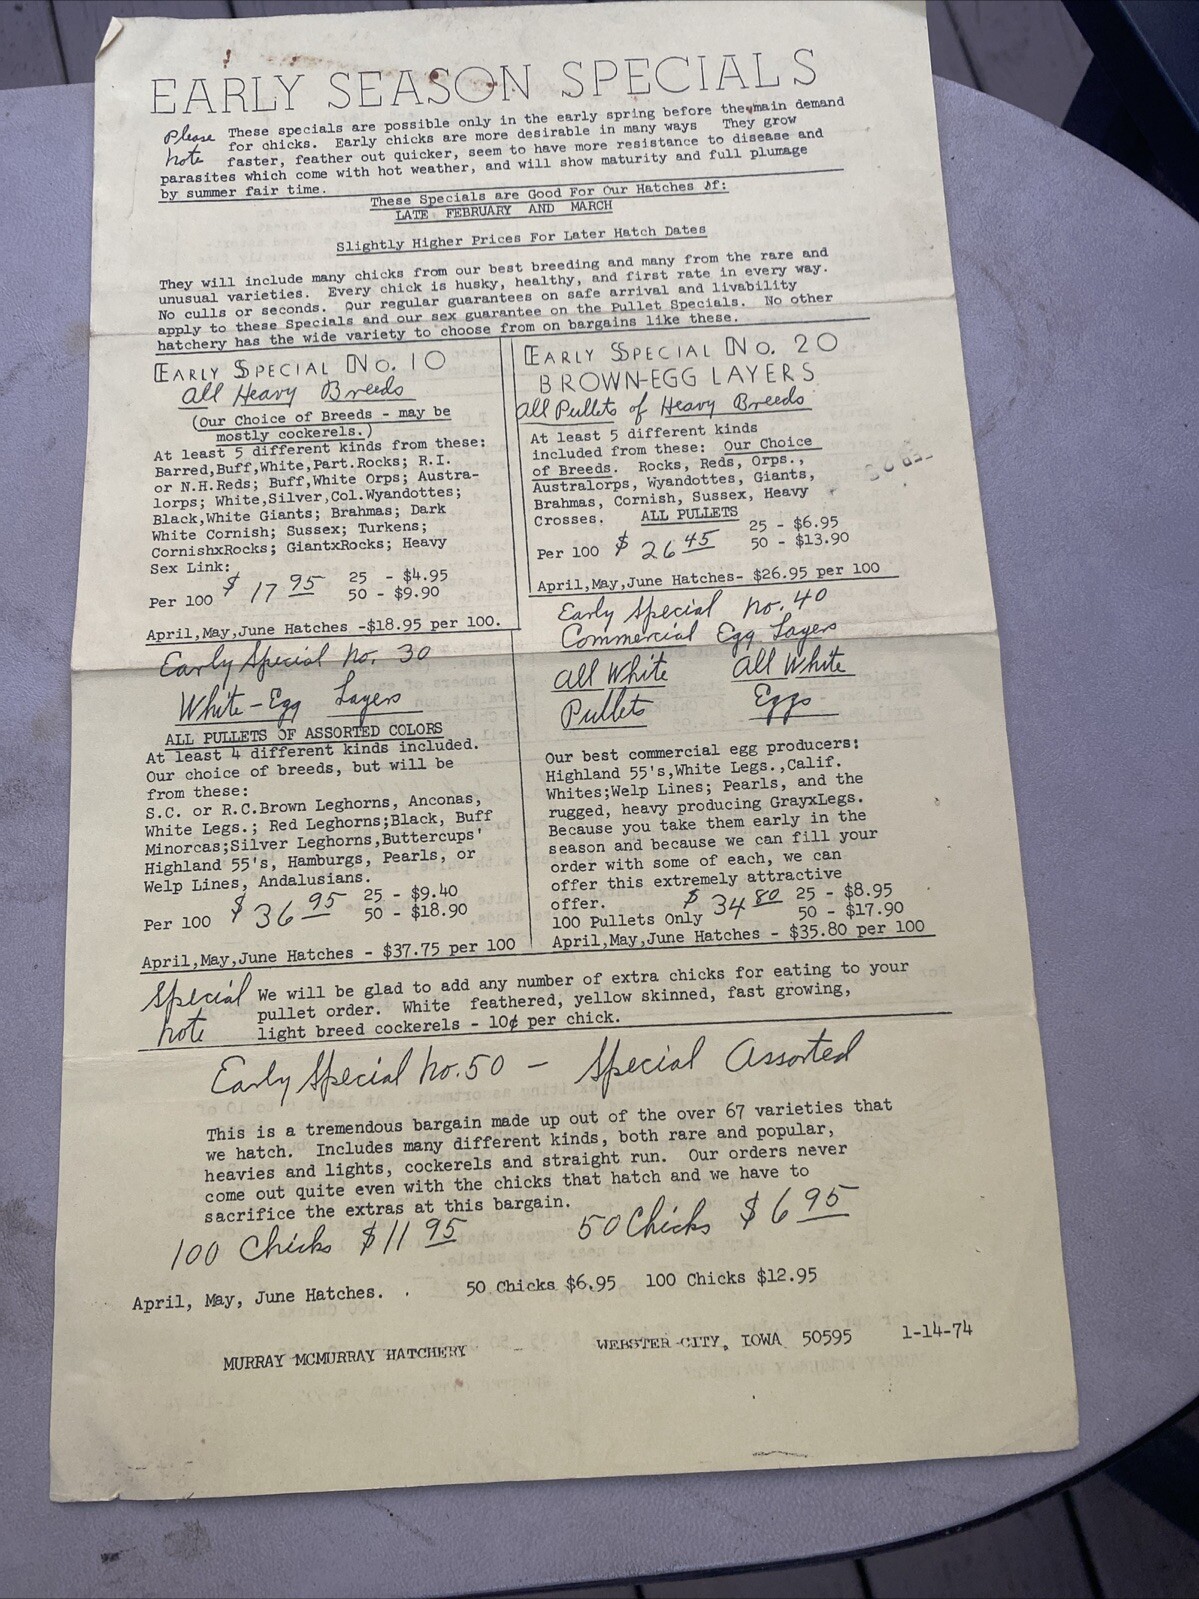 EARLY SEASON SPECIALS
Please note
These specials are possible only in the early spring before the main demand
for chicks. Early chicks are more desirable in many ways They grow
faster, feather out quicker, seem to have more resistance to disease and
parasites which come with hot weather, and will show maturity and full plumage
by summer fair time.
These Specials are Good For Our Hatches of:
LATE FEBRUARY AND MARCH
Slightly Higher Prices For Later Hatch Dates
They will include many chicks from our best breeding and many from the rare and
unusual varieties. Every chick is husky, healthy, and first rate in every way.
No culls or seconds. Our regular guarantees on safe arrival and livability
apply to these Specials and our sex guarantee on the Pullet Specials. No other
hatchery has the wide variety to choose from on bargains like these.
EARLY SPECIAL NO. 10
All Heavy Breeds
(Our Choice of Breeds - may be
mostly cockerels.)
At least 5 different kinds from these:
Barred,Buff,White,Part.Rocks; R.I.
or N.H.Reds; Buff,White Orps; Austra-
lorps; White,Silver,Col.Wyandottes;
Black,White Giants; Brahmas; Dark
White Cornish; Sussex; Turkens;
CornishxRocks; GiantxRocks; Heavy
Sex Link:
Per 100 $17.95
25 - $4.95
50 - $9.90
April,May,June Hatches -$18.95 per 100.
EARLY SPECIAL NO. 20
BROWN-EGG LAYERS
All Pullets of Heavy Breeds
At least 5 different kinds
included from these: Our Choice
of Breeds. Rocks, Reds, Orps.,
Australorps, Wyandottes, Giants,
Brahmas, Cornish, Sussex, Heavy
Crosses. ALL PULLETS
Per 100 $26.45
25 - $6.95
50 - $13.90
April,May,June Hatches- $26.95 per 100
Early Special No. 30
White-Egg Layers
ALL PULLETS OF ASSORTED COLORS
At least 4 different kinds included.
Our choice of breeds, but will be
from these:
S.C. or R.C.Brown Leghorns, Anconas,
White Legs.; Red Leghorns;Black, Buff
Minorcas;Silver Leghorns,Buttercups'
Highland 55's, Hamburgs, Pearls, or
Welp Lines, Andalusians.
Per 100 $36.95
25 - $9.40
50 - $18.90
April,May,June Hatches - $37.75 per 100
Early Special No. 40
Commercial Egg Layers
All White All White
Pullets Eggs
Our best commercial egg producers:
Highland 55's,White Legs.,Calif.
Whites;Welp Lines; Pearls, and the
rugged, heavy producing GrayxLegs.
Because you take them early in the
season and because we can fill your
order with some of each, we can
offer this extremely attractive
offer.
100 Pullets Only $34.80
25 - $8.95
50 - $17.90
April,May,June Hatches - $35.80 per 100
Special note
We will be glad to add any number of extra chicks for eating to your
pullet order. White feathered, yellow skinned, fast growing,
light breed cockerels - 10¢ per chick.
Early Special No. 50 - Special Assorted
This is a tremendous bargain made up out of the over 67 varieties that
we hatch. Includes many different kinds, both rare and popular,
heavies and lights, cockerels and straight run. Our orders never
come out quite even with the chicks that hatch and we have to
sacrifice the extras at this bargain.
100 Chicks $11.95 50 Chicks $6.95
April, May, June Hatches. . 50 Chicks $6.95 100 Chicks $12.95
MURRAY MCMURRAY HATCHERY - WEBSTER CITY, IOWA 50595 1-14-74